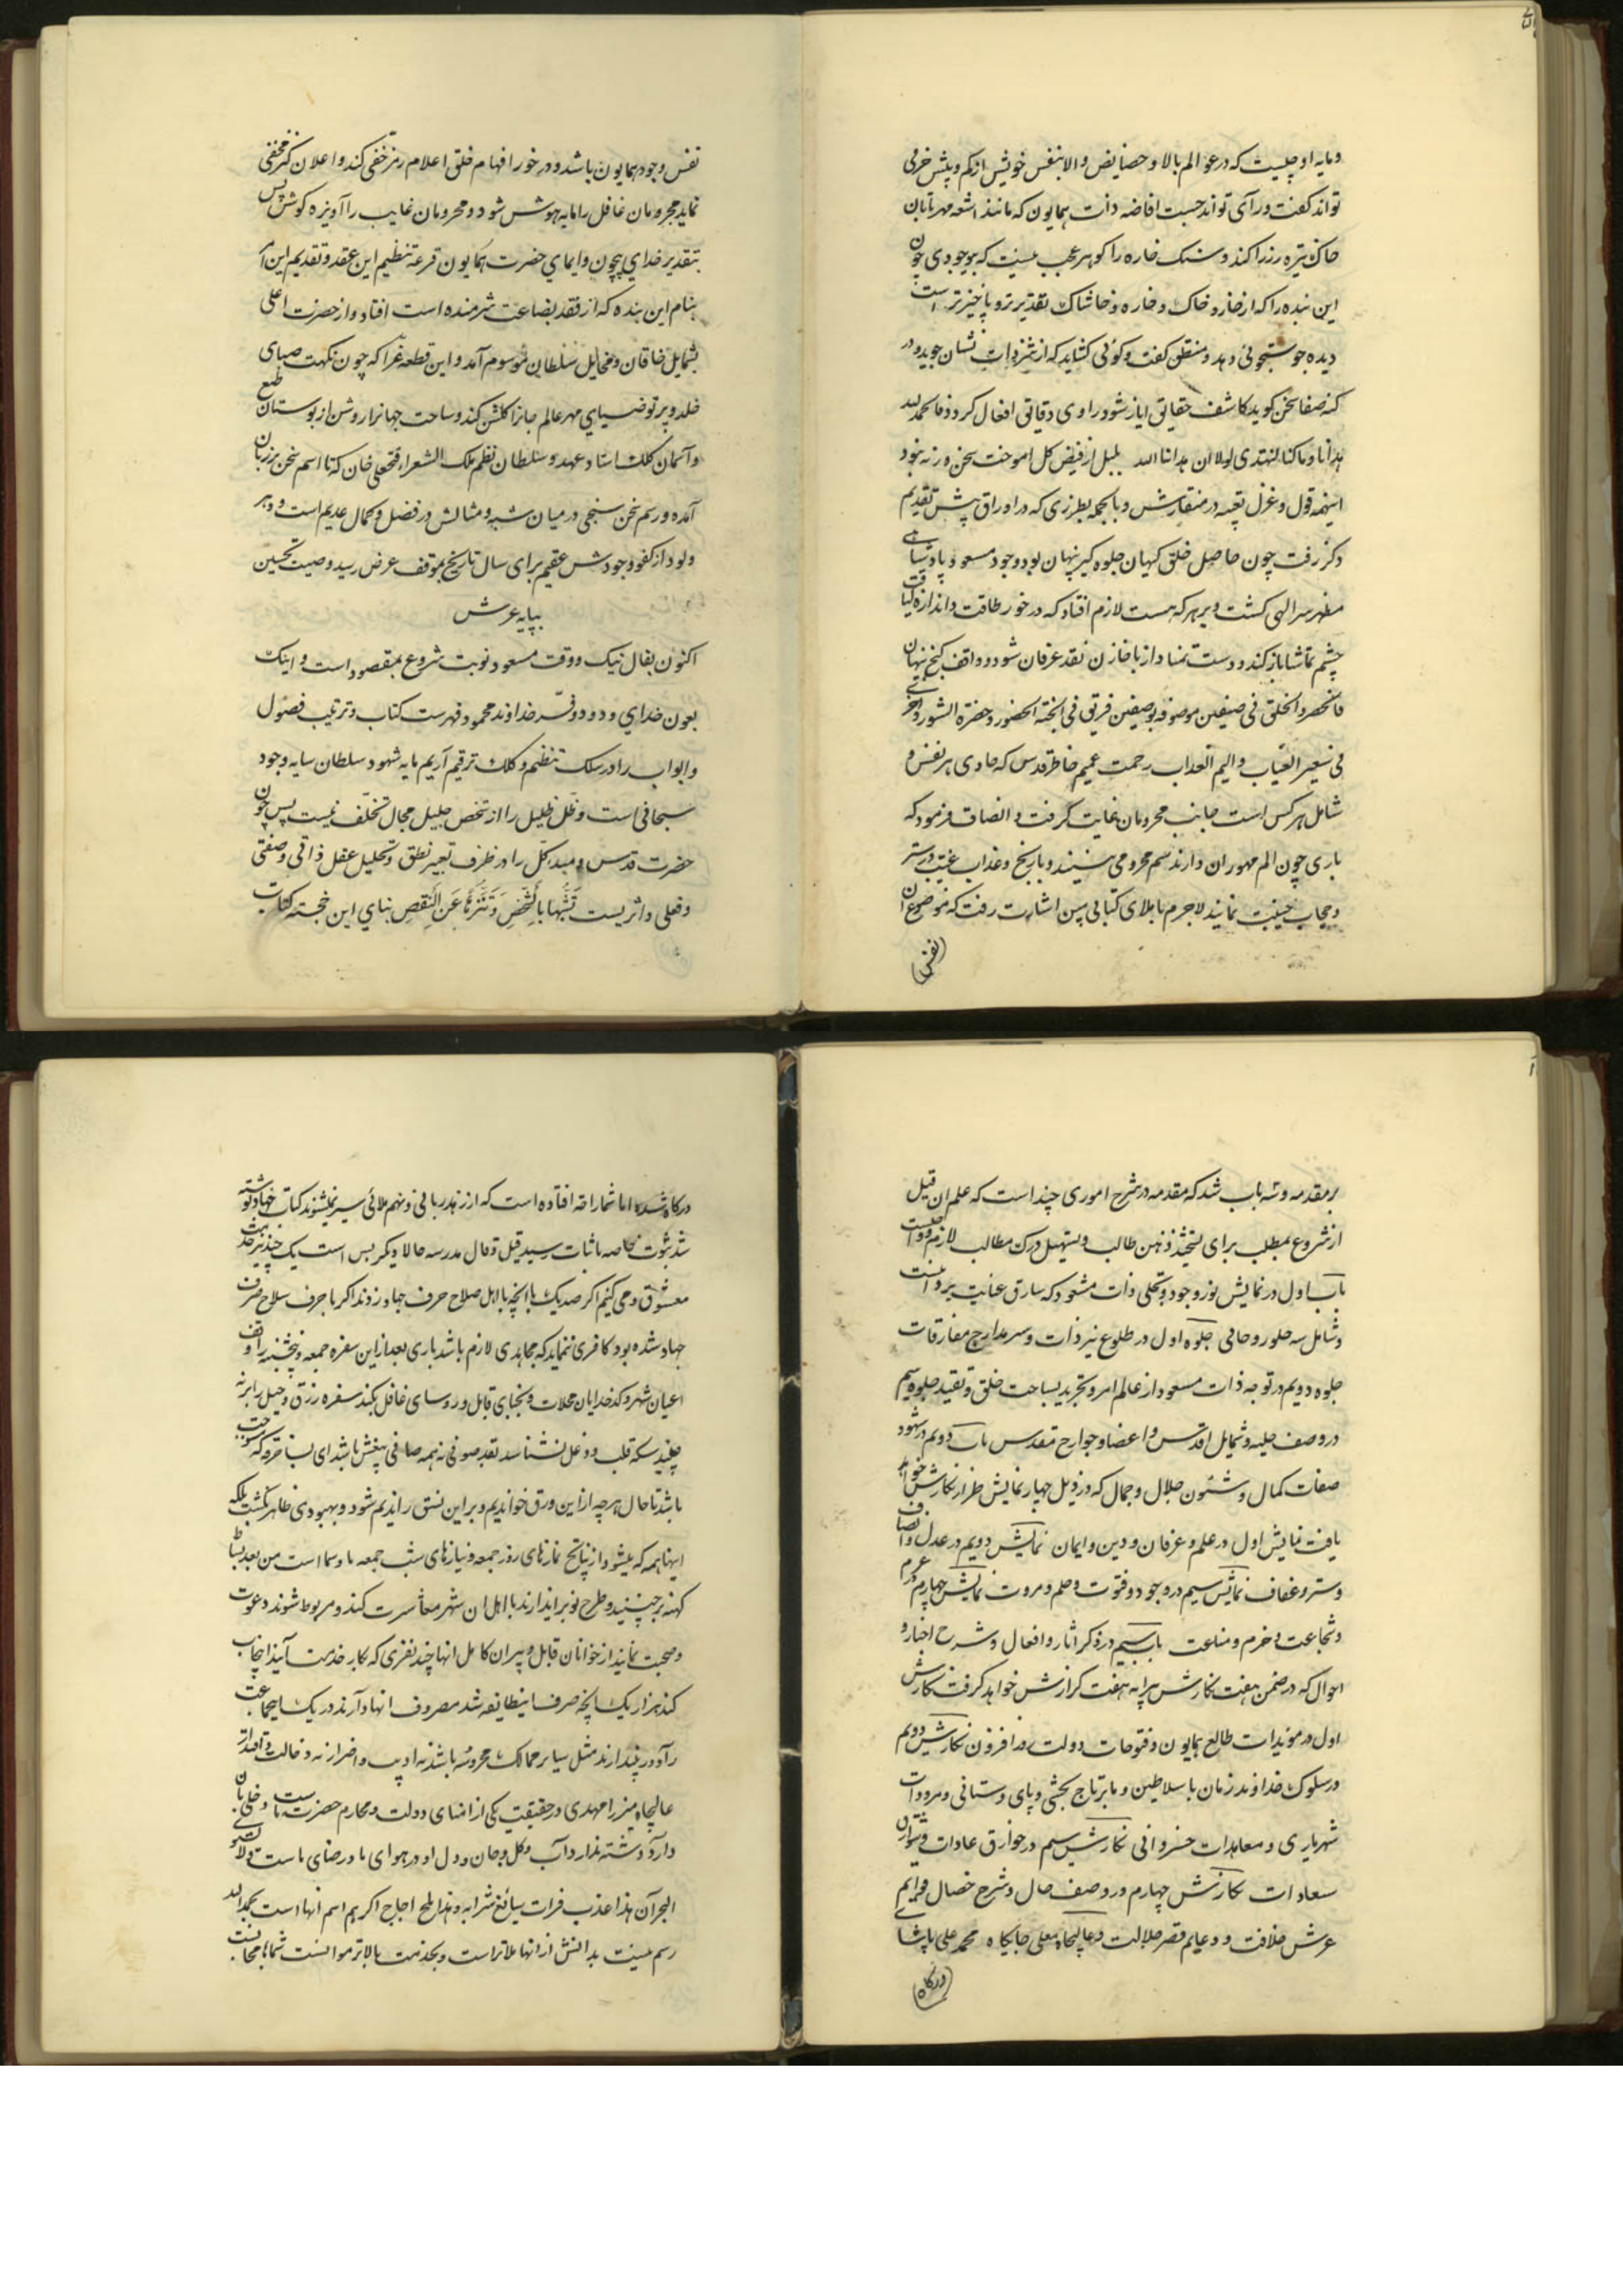 و مایه او چیست که در عوالم بالا و خصایص والا بنفس خویش از کم و بیش خبری
تواند گفت و رای تواند جست افاضه ذات همایون که مانند اشعه مهر تابان
خاک تیره رزرا کند و سنک خاره را کوهر عجب نیست که بوجودی چون
این بنده را که از خار و خاک و خاره و خاشاک بقدر برتر و ناچیزتر است
دیده جوستجوئی دهد و منطق گفت و کوئی کشاید که از شرذات نشان جوید و در
کنه صفا سخن کوید کاشف حقایق ایاز شود و راوی دقایق افعال کردد فالحمد لله
هدانا و ما کنا لنهتدی لولا ان هدانا الله بلبل از فیض کل اموخت سخن ورنه نبود
اینهمه قول و غزل تعبیه در منقارش و بالجمله بطرزی که در اوراق پیش تقدیم
ذکر رفت چون حاصل خلق کیهان جلوه کیر پنهان بود وجود مسعود پادشاهی
مظهر سر الهی کشت و بر هر که هست لازم افتاد که در خور طاقت و اندازه لیاقت
چشم تماشا باز کند و دست تمنا دراز تا خازن نقد عرفان شود و واقف کنج پنهان
فانحصر الخلق فی صنفین موصوفه بوصفین فریق فی الجنة الحضور و حضرة الشهور و اخری
فی سعیر الغیاب و الیم العذاب رحمت عمیم خاطر قدس که حاوی هر نفس و
شامل هر کس است جانب محرومان غایت گرفت و انصاف فرمود که
باری چون الم مهجوران دارند سم محرومی بینند و با رنج و عذاب غیبت در ستر
و حجاب خیبت نمایند لاجرم باملای کتابی مبین اشارت رفت که موضوع آن
(نفس)
نفس وجود همایون باشد و در خور افهام خلق اعلام رمز خفی کند و اعلان کنز مخفی
نماید مجرومان غافل را مایه هوش شود و محرومان غایب را آویزه کوش پس
بتقدیر خدای بیچون و ایمای حضرت همایون قرعه تنظیم این عقد و تقدیم این امر
بنام این بنده که از فقد بضاعت شرمنده است افتاد و از حضرت اعلی
بشمایل خاقان و مخایل سلطان موسوم آمد و این قطعه غرا که چون نکهت صبای
خلد و پرتو ضیای مهر عالم جانرا کلشن کند و ساحت جهانرا روشن از بوستان طبع
و آسمان کلک استاد عهد و سلطان نظم ملک الشعراء فتحعلی خان که تا اسم سخن بر زبان
آمده و رسم سخن سنجی در میان شبه و مثالش در فضل و کمال عدیم است و دهر
ولود از کفو وجودش عقیم برای سال تاریخ بموقف عرض رسید و صیت تحسین
بپایه عرش
اکنون بفال نیک و وقت مسعود نوبت شروع بمقصود است و اینک
بعون خدای ودود و فر خداوند محمود فهرست کتاب و ترتیب فصول
و ابواب را در سلک تنظیم و کلک ترقیم آریم مایه شهود سلطان سایه وجود
سبحانی است و ظل ظلیل را از شخص جلیل مجال تخلف نیست پس چون
حضرت قدس و مبدء کل را در ظرف تعبیر نطق و تحلیل عقل ذاتی وصفتی
و فعلی و اثریست تشبها بالشخص و تنزها عن النقص بنای این خجسته کتاب
بر مقدمه و سه باب شد که مقدمه در شرح اموری چند است که علم ان قبل
از شروع بمطلب برای تشحیذ ذهن طالب و تسهیل درک مطالب لازم و واجبست
باب اول در نمایش نور وجود و تجلی ذات مشهود که سارق عنایت یزدانیست
و شامل سه جلوه روحانی جلوه اول در طلوع نیر ذات و سیر مدارج مفارقات
جلوه دویم در توجه ذات مسعود از عالم امر و تجرید بساحت خلق و تقید جلوه سیم
در وصف حلیه و شمایل اقدس و اعضا و جوارح مقدس باب دویم در شهود
صفات کمال و شئون جلال و جمال که در ذیل چهار نمایش طراز نکارش خواهد
یافت نمایش اول در علم و عرفان و دین و ایمان نمایش دویم در عدل و انصاف
و ستر و عفاف نمایش سیم در وجود و فتوت و حلم و مروت نمایش چهارم در عزم
و شجاعت و حزم و مناعت باب سیم در ذکر اثار و افعال و شرح اخبار و
احوال که در ضمن هفت نکارش پیرایه هفت گزارش خواهد گرفت نکارش
اول در مویدات طالع همایون و فتوحات دولت روز افزون نکارش دویم
در سلوک خداوند زمان با سلاطین و ما بر تاج بخشی و پای دستانی و مرودات
شهریاری و معاهدات خسروانی نکارش سیم در خوارق عادات و شوارق
سعادات نکارش چهارم در وصف حال و شرح خصال قوایم
عرش خلافت و دعایم قصر جلالت و عالیجاه معلی جایکاه محمد علی پاشای
(درکاه)
درکاه شده اما شما را قه افتاده است که از زهد ربائی و نهم ملائی سیر نمیشوند کتاب جهادیه نوشته
شد نبوت خاصه باثبات رسید قیل و قال مدرسه حالا دیکر بس است یک چند نیز خدمت
معشوق و می کنیم اگر صد یک بآنچه با اهل صلاح حرف جهاد زدند اکر با حرف سلاح صرف
جهاد شده بود کافری نمیماند که مجاهدی لازم باشد باری بعد از این سفره جمعه و پنجشنبه را وقف
اعیان شهر و کدخدایان محلات و نجبای قابل و روسای عاقل بکند سفره رزق و حیل را برنه
چینید سکه قلب و دغل نشناسد نقد صوفی نه همه صافی بیغش باشد ای بسا خرقه که مستوجب
باشد تا حال هر چه از این ورق خواندیم و بر این نسق راندیم شود و بهبودی ظاهر نکشت بلکه
اینها همه که میشود از نتایج نمازهای روز جمعه و نیازهای شب جمعه ما و شما است من بعد بساط
کهنه برچینید و طرح نو براندازند با اهل ان شهر معاشرت کنند و مربوط شوند دعوت
و صحبت نمایند از خوانان قابل و پیران کامل انها چند نفری که بکار خدمت آیند انتخاب
کنند هزار یک آنچه صرف اینطایفه شد مصروف انها دارند در یکسا این جماعت
را دور بیندازند مثل سایر ممالک محروسه باشند نه ادیب و اضرار نه دخالت و اقتدار
عالیجاه میرزا مهدی در حقیقت یکی از امنای دولت و محارم حضرت ماست و خلی بآن
دارد و شته ندارد آب و کل و جان و دل او در هوای ما و رضای ماست و لا یستوی
البحران هذا عذب فرات سائغ شرابه و هذا ملح اجاج اکر هم اسم انها است بحمد الله
رسم نیست بدانش از انها ملاتر است و بخدمت بالاتر موانست شماها مجانست